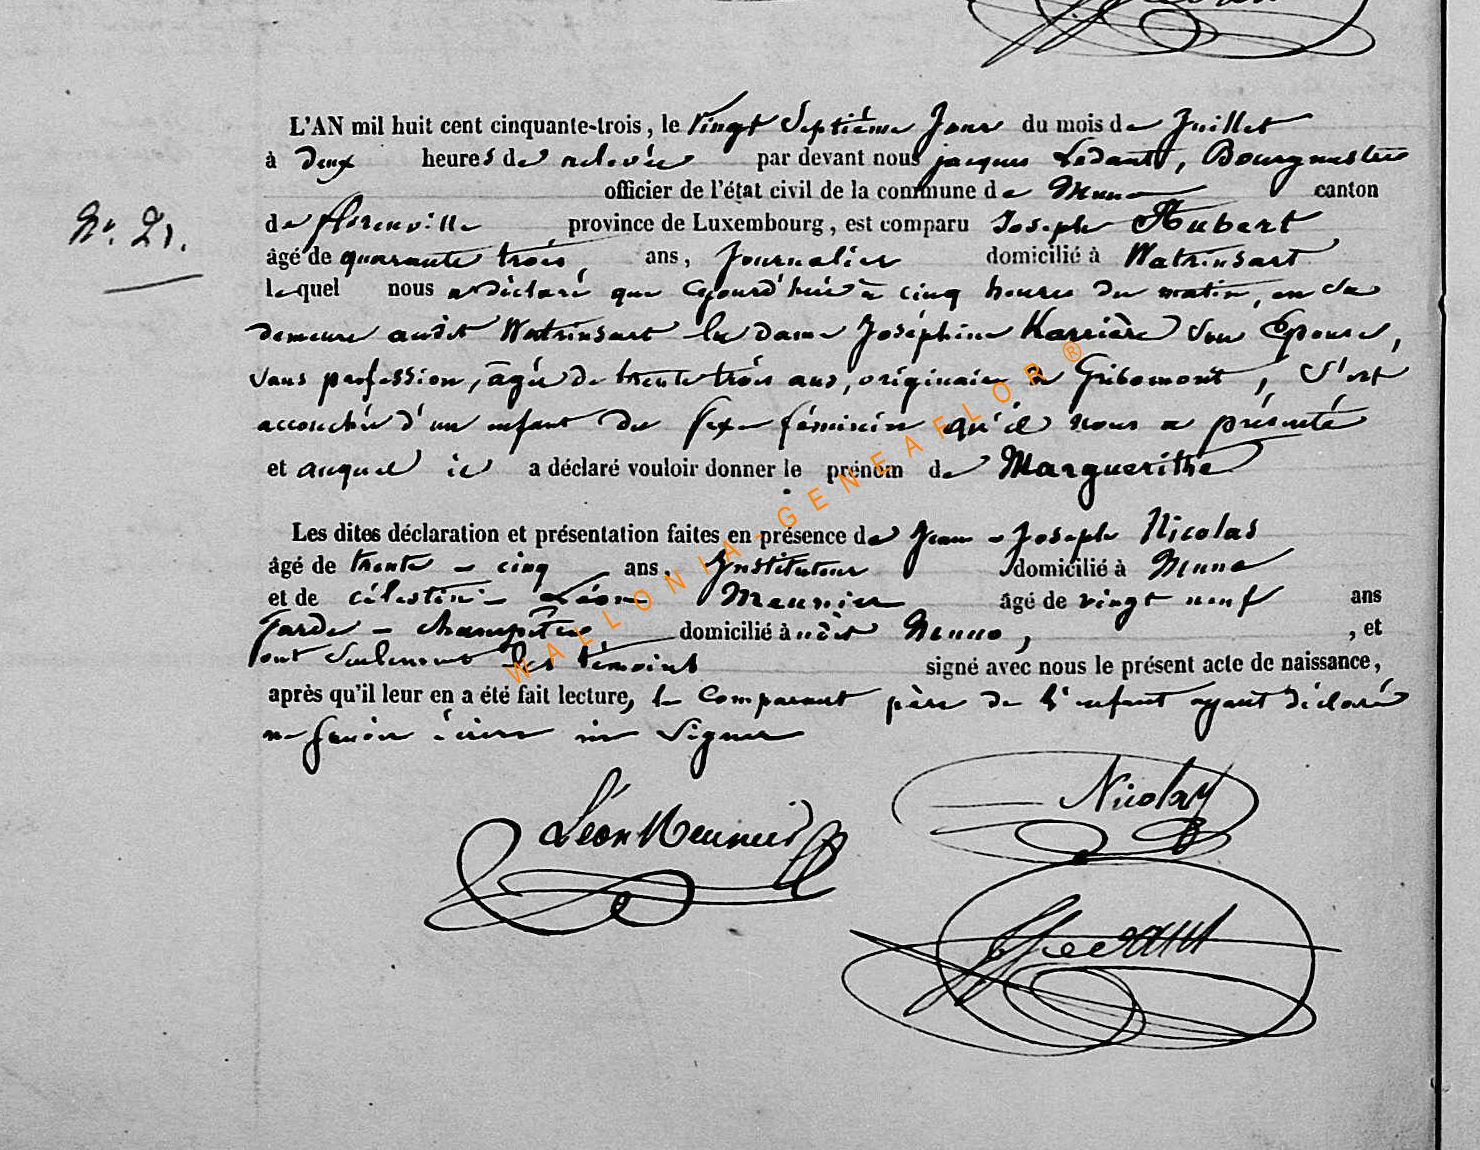 L'AN mil huit cent cinquante-trois, le vingt Septième Jour du mois de Juillet
à deux heures de relevée par devant nous jacques Ledant, Bourgmestre
officier de l'état civil de la commune de Muno canton
No. 21.
de florenville province de Luxembourg, est comparu Joseph Hubert
âgé de quarante trois, ans, Journalier domicilié à Watrinsart
lequel nous a déclaré que cejourd'hui à cinq heures du matin, en sa
demeure audit Watrinsart la dame Joséphine Karrière son Epouse,
sans profession, âgée de trente trois ans, originaire de Gribomont, s'est
accouchée d'un enfant du sexe féminin qu'il nous a présenté
et auquel il a déclaré vouloir donner le prénom de Marguerithe
Les dites déclaration et présentation faites en présence de Jean - Joseph Nicolas
âgé de trente - cinq ans, Instituteur domicilié à Muno
et de célestin - Léon Meunier âgé de vingt neuf ans
Garde - champêtre domicilié audit Munno, , et
ont seulement les témoins signé avec nous le présent acte de naissance,
après qu'il leur en a été fait lecture, le Comparant père de l'enfant ayant déclaré
ne savoir écrire ni Signer
Nicolay
Léon Meunier
WALLONIA-GENEAFLOR ®